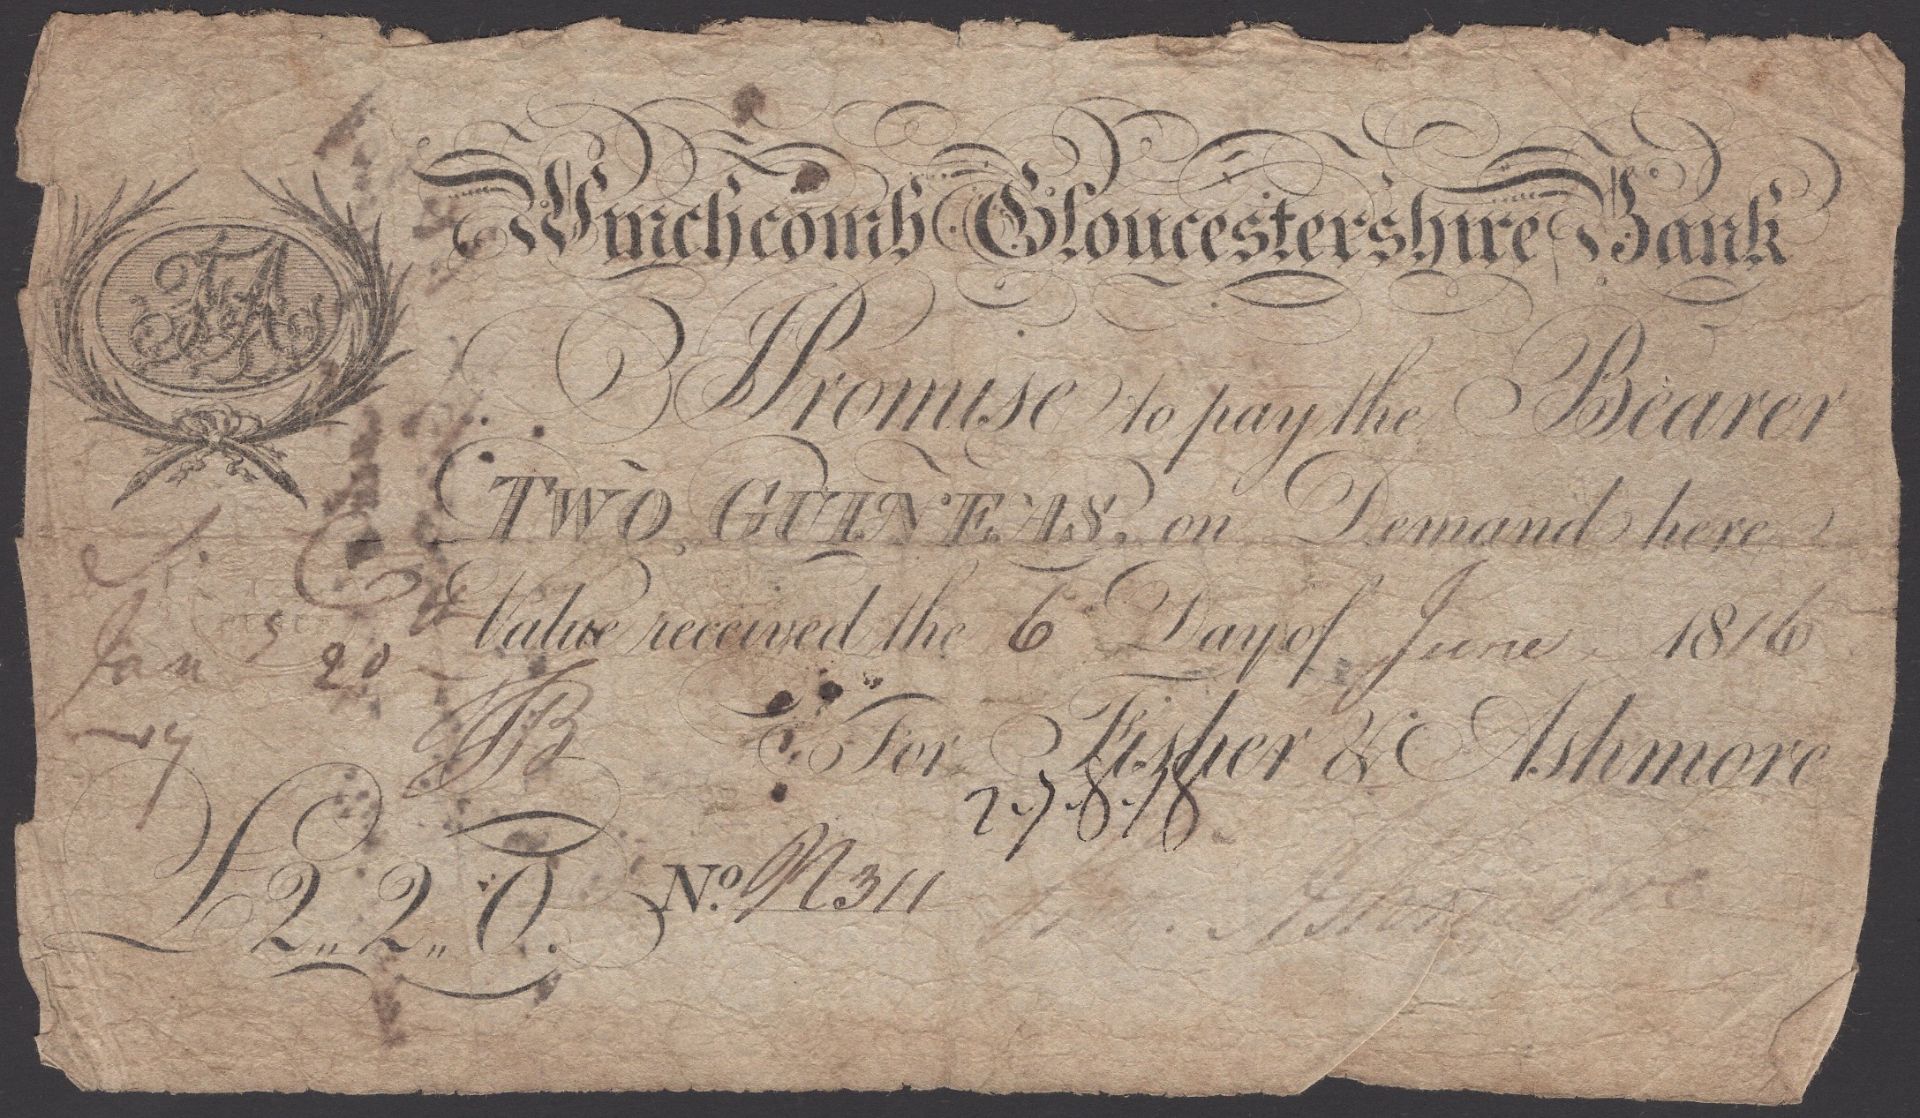 Winchcomb Gloucestershire Bank
F&A
I Promise to pay the Bearer
TWO GUINEAS, on Demand here
Value received the 6 Day of June 1816
Jan 5 20
For Fisher & Ashmore
2.7.8.18
£2,,2,,0. No. N311
Ashmore